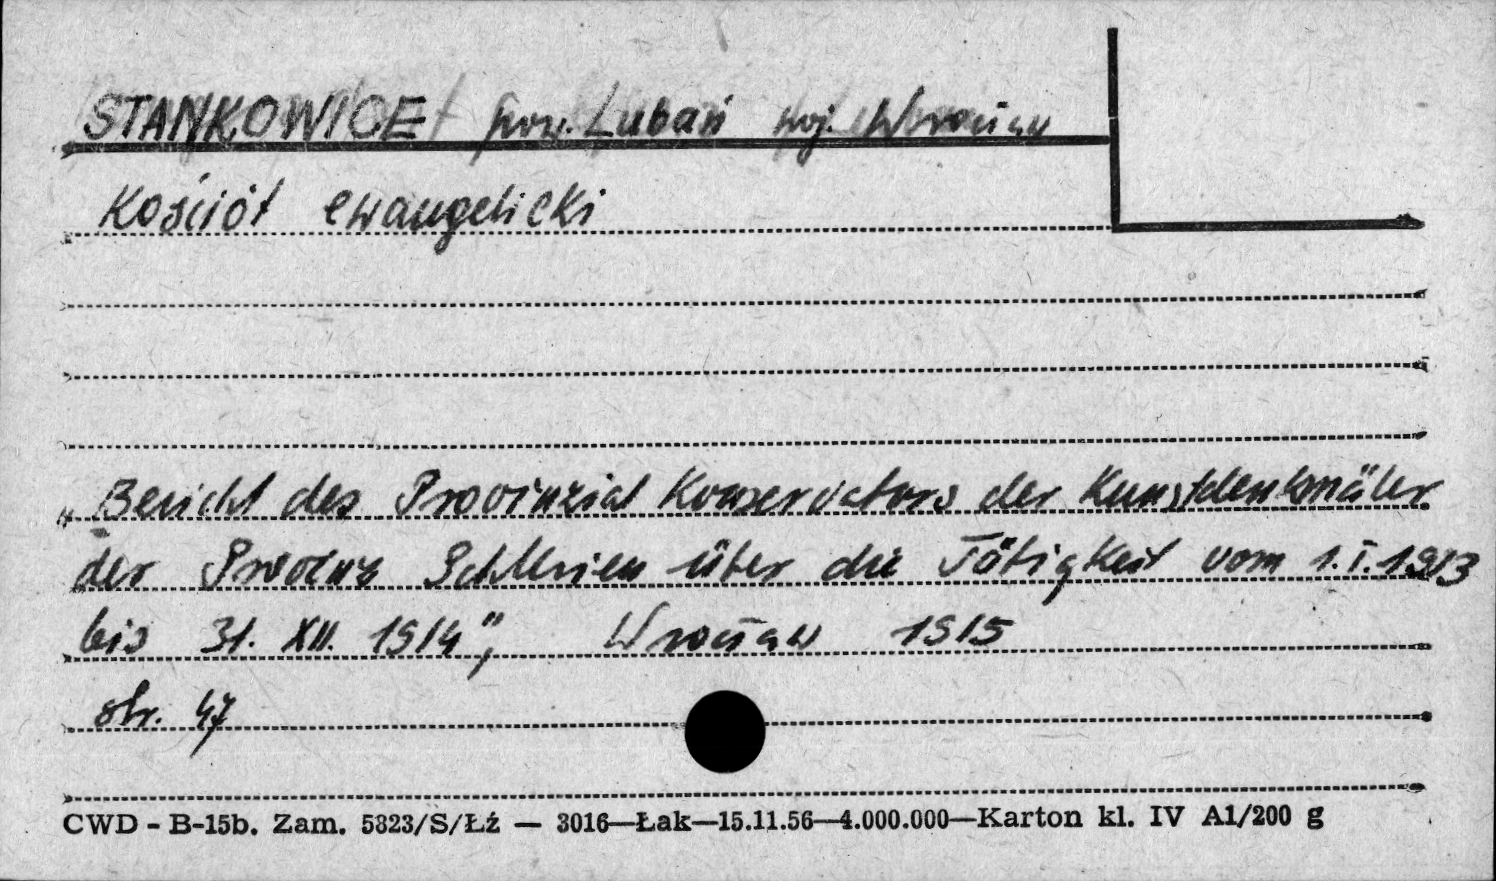 STANKOWICE pow. Lubań woj. Wrocław
Kościół ewangelicki
„Bericht des Provinzial Konservators der Kunstdenkmäler
der Provinz Schlesien über die Tätigkeit vom 1.I.1913
bis 31. XII. 1914", Wrocław 1915
str. 47
CWD - B-15b. Zam. 5323/S/Łź — 3016—Łak—15.11.56—4.000.000—Karton kl. IV A1/200 g